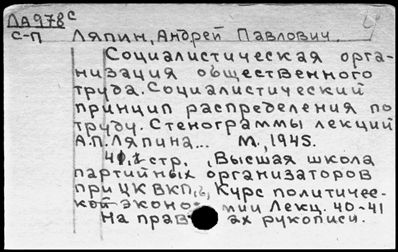 ДА978с
С-П Ляпин, Андрей Павлович.
Социалистическая орга-
низация общественного
труда. Социалистический
принцип распределения по
труду. Стенограммы лекций
А.П.Ляпина... М., 1945.
стр. , Высшая школа
партийных организаторов
при ЦК ВКП(б), Курс политичес-
кой эконо мии Лекц. 40-41
На прав ах рукописи.